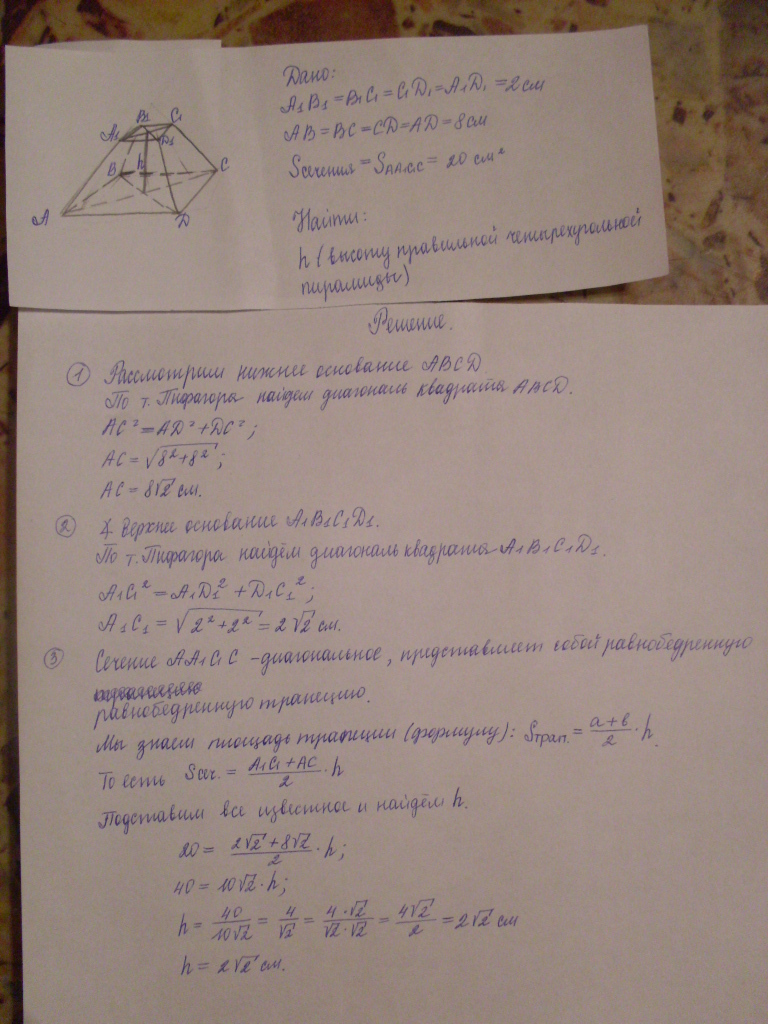 B1 C1
A1 D1
B h C
A D
Дано:
A1B1 = B1C1 = C1D1 = A1D1 = 2 см
AB = BC = CD = AD = 8 см
Sсечения = SAA1C1C = 20 см²
Найти:
h (высоту правильной четырехугольной
пирамиды)
Решение.
① Рассмотрим нижнее основание ABCD
По т. Пифагора найдем диагональ квадрата ABCD.
AC² = AD² + DC²;
AC = √8²+8²;
AC = 8√2 см.
② ∡ верхнее основание A1B1C1D1.
По т. Пифагора найдём диагональ квадрата A1B1C1D1.
A1C1² = A1D1² + D1C1²;
A1C1 = √2²+2² = 2√2 см.
③ Сечение AA1C1C - диагональное, представляет собой равнобедренную
равнобедренную трапецию.
Мы знаем площадь трапеции (формулу): Sтрап. = (a+b)/2 · h.
То есть Sсеч. = (A1C1 + AC)/2 · h
Подставим все известное и найдём h.
20 = (2√2 + 8√2)/2 · h;
40 = 10√2 · h;
h = 40/10√2 = 4/√2 = 4·√2/√2·√2 = 4√2/2 = 2√2 см
h = 2√2 см.